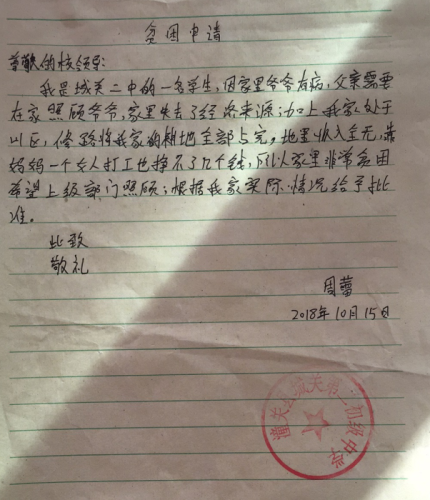 贫困申请
尊敬的校领导:
我是城关二中的一名学生,因家里爷爷有病,父亲需要
在家照顾爷爷,家里失去了经济来源;加上我家处于
山区,修路将我家的耕地全部占完,地里收入全无,靠
妈妈一个女人打工也挣不了几个钱,所以家里非常贫困
希望上级部门照顾;根据我家实际情况给予批
准。
此致
敬礼
周蕾
2018年10月15日
潼关县城关第二初级中学